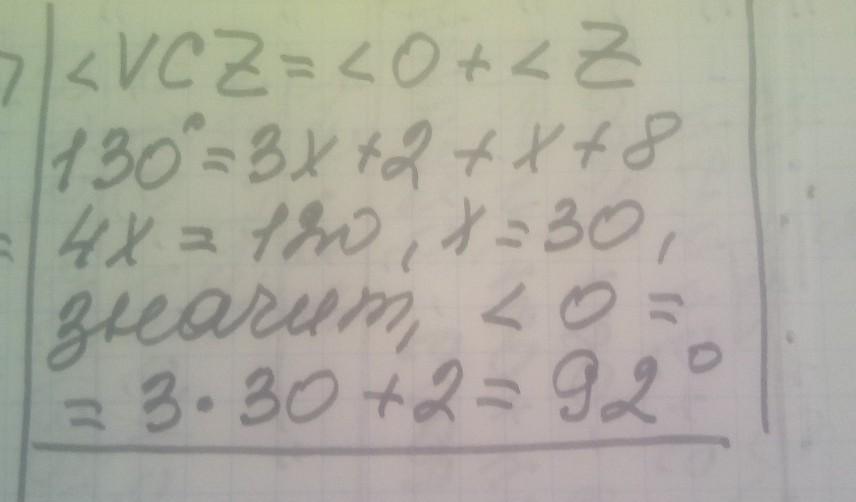 <VCZ=<O+<Z
130°=3x+2+x+8
4x=120, x=30,
значит, <O=
=3·30+2=92°